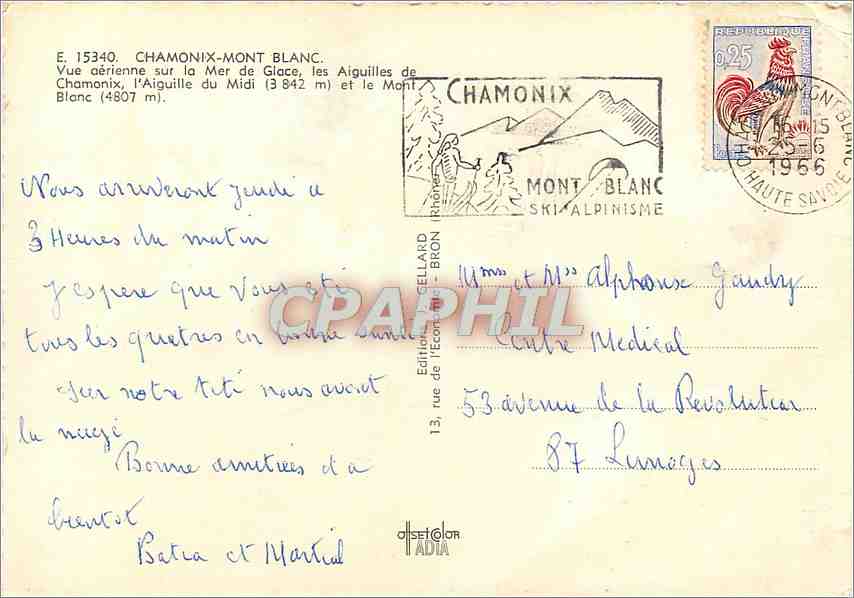 E. 15340. CHAMONIX-MONT BLANC.
Vue aérienne sur la Mer de Glace, les Aiguilles de
Chamonix, l'Aiguille du Midi (3 842 m) et le Mont
Blanc (4807 m).
CHAMONIX
MONT BLANC
SKI-ALPINISME
REPUBLIQUE FRANÇAISE
0,25
CHAMONIX MONT BLANC
16-15
25-6
1966
HAUTE SAVOIE
Nous arriveront jeudi a
3 Heures du matin
J'espere que Vous eté
tous les quatres en bonne santé
sur notre télé nous avont
la neige
Bonne amitiées et a
bientot
Batia et Martial
Editions J. GELLARD
13, rue de l'Economie - BRON (Rhône)
CPAPHIL
Mms et Mss Alphonse Gaudry
Centre Medical
53 avenue de la Revolution
87 Limoges
offsetcolor
IADIA